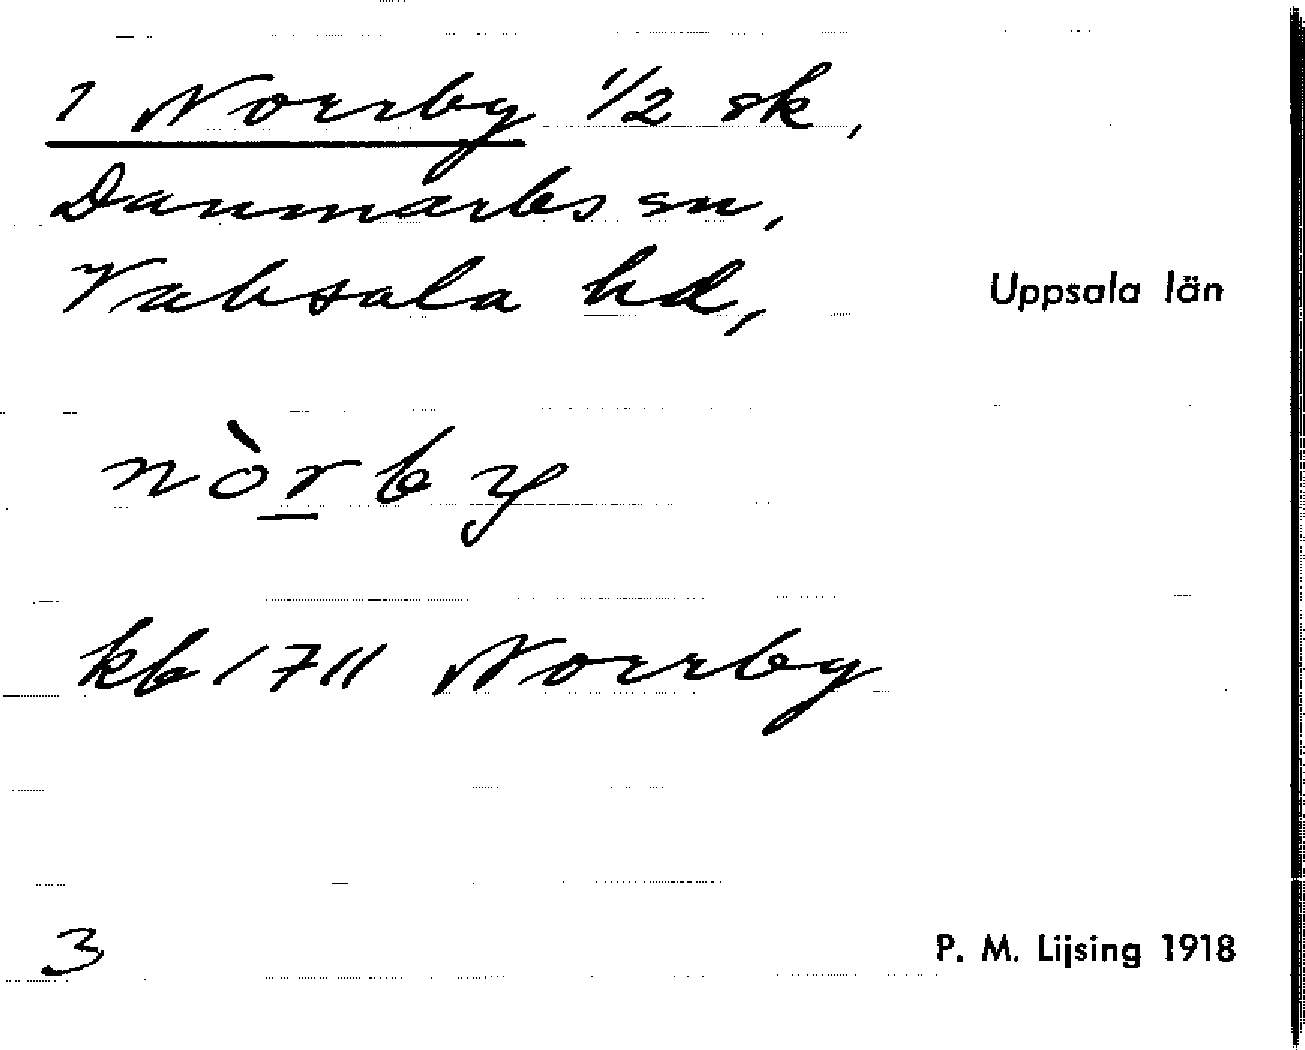 1 Norrby 1/2 sk,
Danmarks sn,
Vaksala hd, Uppsala län
nòrby
kb 1711 Norrby
3 P. M. Lijsing 1918